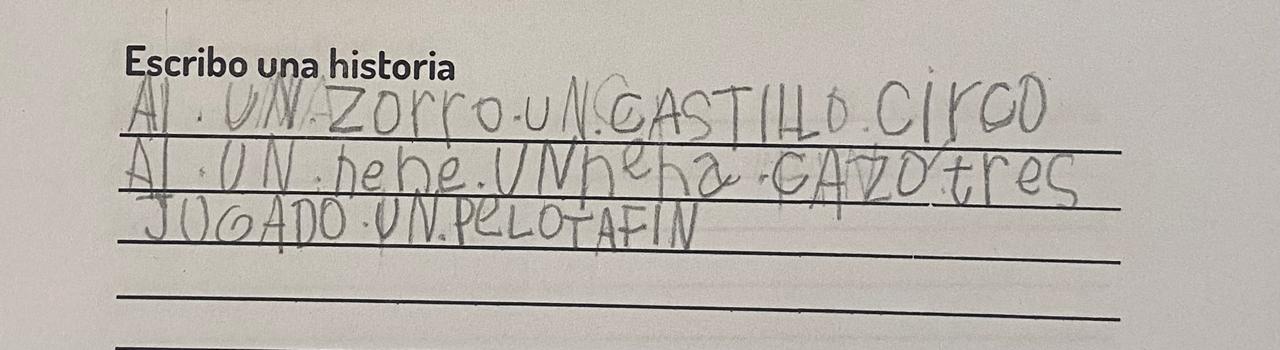 Escribo una historia
AI . UN . ZORRO . UN . CASTILLO . CirCO
AI . UN . hehe . UN heha . CAZO tres
JUGADO . UN . PeLOTAFIN